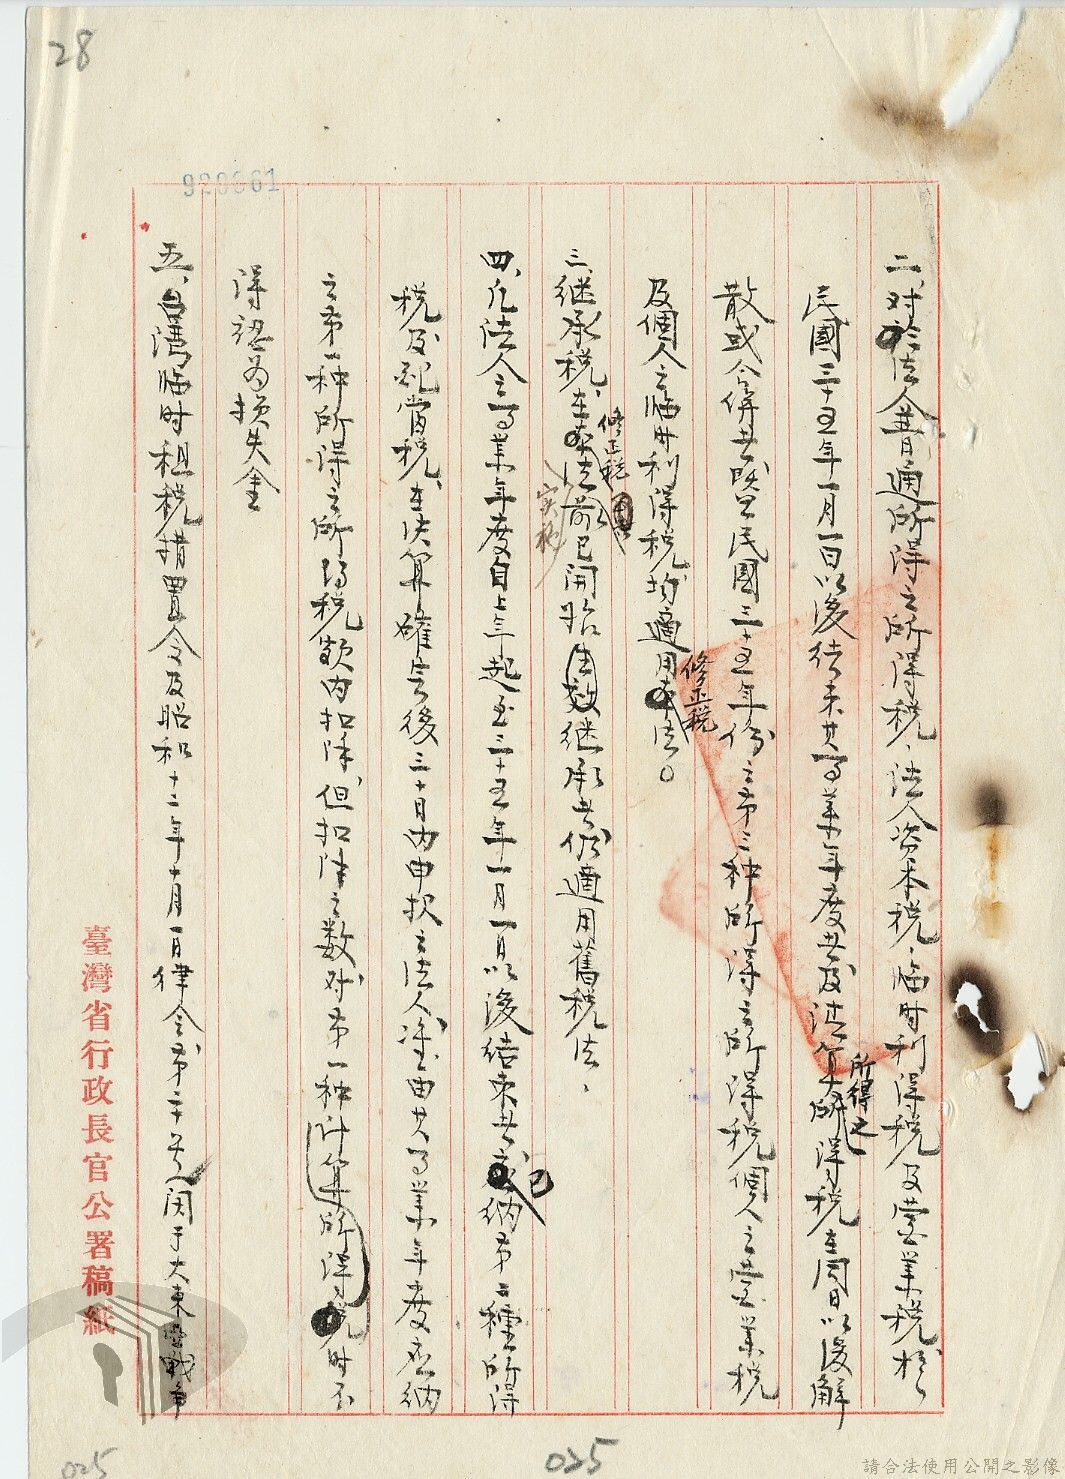 28
920361
二、对於法人普通所得之所得税、法人资本税、临时利得税及营業税於
民國三十五年一月一日以後结束其事業年度者及法算所得税在同日以後解
所得之
散或合併者暨民國三十五年份之第三种所得之所得税個人之营業税
及個人之临时利得税均適用本法。
修正税
三、继承税、在本法前已開始生效继承者仍適用舊税法、
修正税
实施
四、凡法人之事業年度自上年起至三十五年一月一日以後结束者 纳第二種所得
已
税及配當税、在决算確定後三十日内申报之法人准由其事業年度应纳
之第一种所得之所得税额内扣除、但扣除之数对第一种计算所得税时不
得認为损失金
五、台湾临时租税措置令及昭和十二年十月一日律令第二十号闵于大東亞戰争
臺灣省行政長官公署稿紙
025
025
請合法使用公開之影像